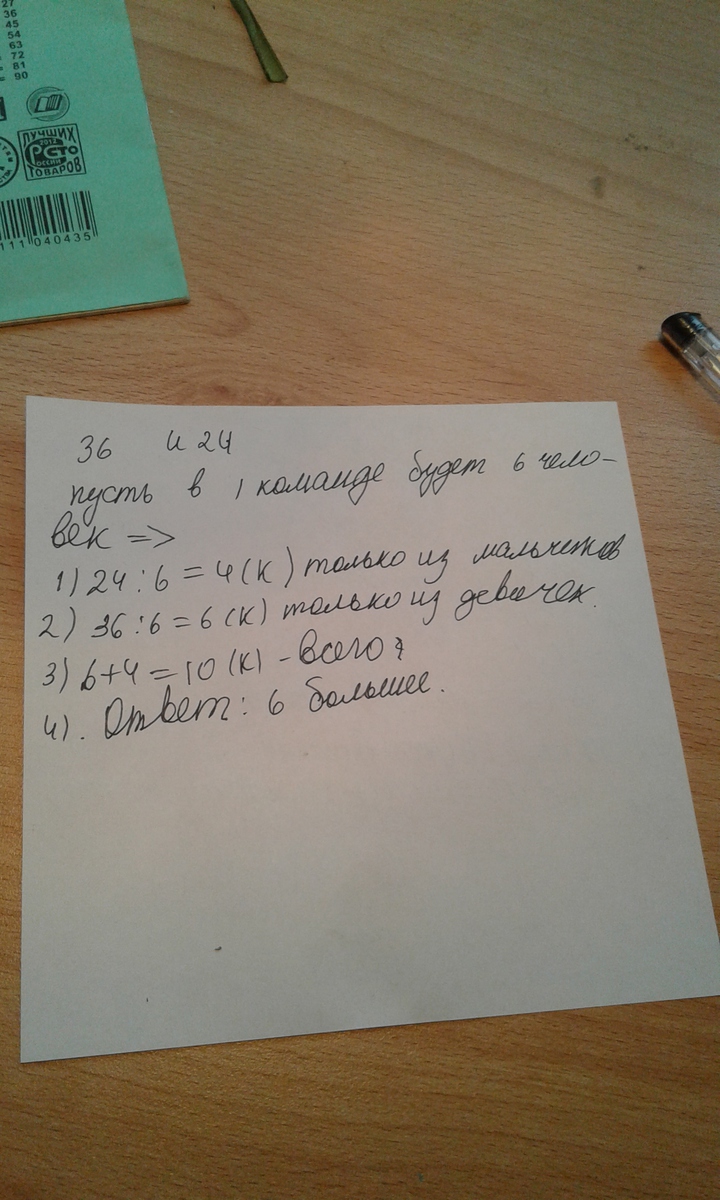 27
36
45
54
63
= 72
= 81
= 90
ЛУЧШИХ
2012
РСТО
РОССИИ
ТОВАРОВ
111 040435
36 и 24
пусть в 1 команде будет 6 чело-
век =>
1) 24 : 6 = 4 (к) только из мальчиков
2) 36 : 6 = 6 (к) только из девочек.
3) 6+4 = 10 (к) - всего
4). Ответ: 6 больше.